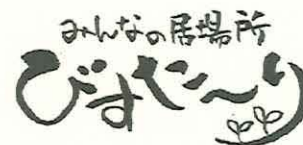 みんなの居場所
びすた〜り